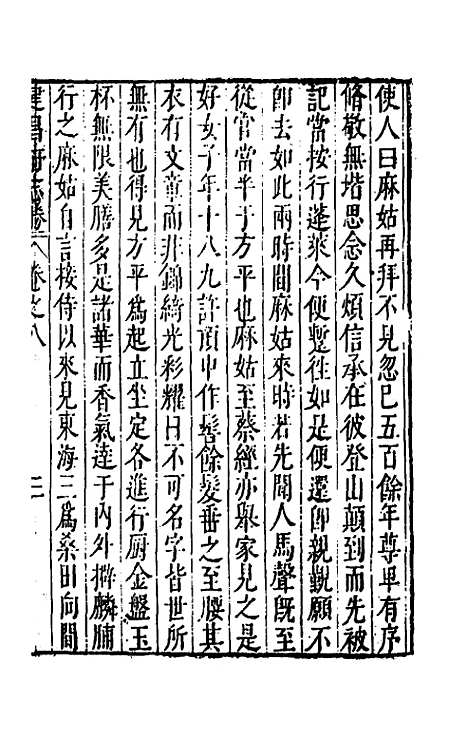 使人曰麻姑再拜不見忽已五百餘年尊卑有序
脩敬無堦思念久煩信承在彼登山顛到而先被
記當按行蓬萊今便蹔往如是便還即親覲願不
即去如此兩時間麻姑來時若先聞人馬聲既至
從官當半于方平也麻姑至蔡經亦舉家見之是
好女子年十八九許頂中作髻餘髮垂之至腰其
衣有文章而非錦綺光彩耀日不可名字皆世所
無有也得見方平爲起立坐定各進行厨金盤玉
杯無限美膳多是諸華而香氣達于內外擗麟脯
行之麻姑自言接侍以來見東海三爲桑田向間
建昌府志勝 卷之八 二